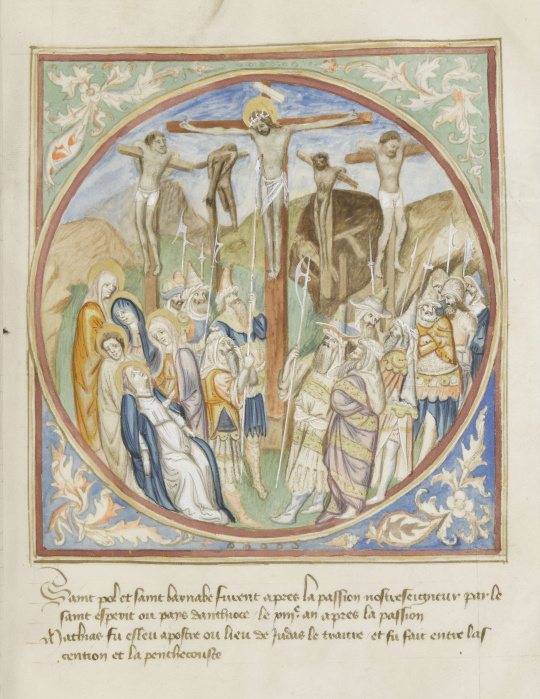 Saint pol et saint barnabe furent apres la passion nostreseigneur par le
saint esperit ou pays danthioce . le xiiije. an apres la passion
Mathias fu esleu apostre ou lieu de Judas le traitre / et fu fait entre las
cention et la penthecouste